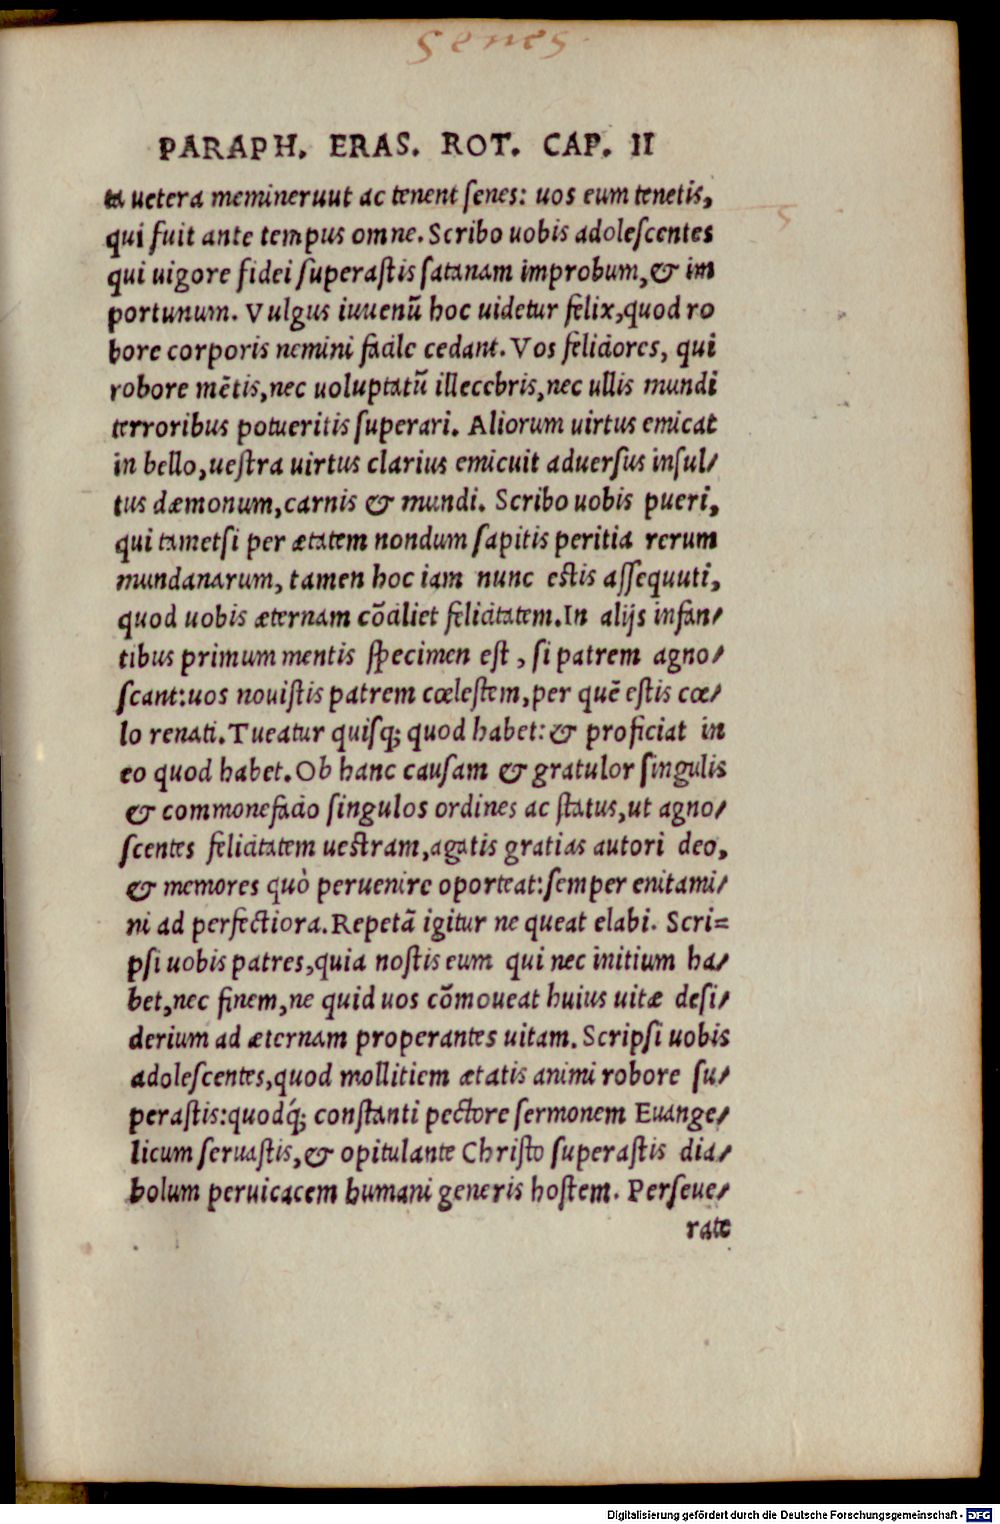 senes
PARAPH. ERAS. ROT. CAP. II
ta uetera memineruut ac tenent ſenes: uos eum tenetis,
qui fuit ante tempus omne. Scribo uobis adoleſcentes
qui uigore fidei ſuperaſtis ſatanam improbum, & im
portunum. Vulgus iuuenũ hoc uidetur felix, quod ro
bore corporis nemini facile cedant. Vos feliciores, qui
robore mẽtis, nec uoluptatũ illecebris, nec ullis mundi
terroribus potueritis ſuperari. Aliorum uirtus emicat
in bello, ueſtra uirtus clarius emicuit aduerſus inſul/
tus dæmonum, carnis & mundi. Scribo uobis pueri,
qui tametſi per ætatem nondum ſapitis peritia rerum
mundanarum, tamen hoc iam nunc eſtis aſſequuti,
quod uobis æternam cõciliet felicitatem. In alijs infan/
tibus primum mentis ſpecimen eſt, ſi patrem agno/
ſcant: uos nouiſtis patrem cœleſtem, per quẽ eſtis cœ/
lo renati. Tueatur quiſq; quod habet: & proficiat in
eo quod habet. Ob hanc cauſam & gratulor ſingulis
& commonefacio ſingulos ordines ac ſtatus, ut agno/
ſcentes felicitatem ueſtram, agatis gratias autori deo,
& memores quò peruenire oporteat: ſemper enitami/
ni ad perfectiora. Repetã igitur ne queat elabi. Scri=
pſi uobis patres, quia noſtis eum qui nec initium ha/
bet, nec finem, ne quid uos cõmoueat huius uitæ deſi/
derium ad æternam properantes uitam. Scripſi uobis
adoleſcentes, quod mollitiem ætatis animi robore ſu/
peraſtis: quodq́; conſtanti pectore ſermonem Euange/
licum ſeruaſtis, & opitulante Chriſto ſuperaſtis dia/
bolum peruicacem humani generis hoſtem. Perſeue/
rate
Digitalisierung gefördert durch die Deutsche Forschungsgemeinschaft - DFG